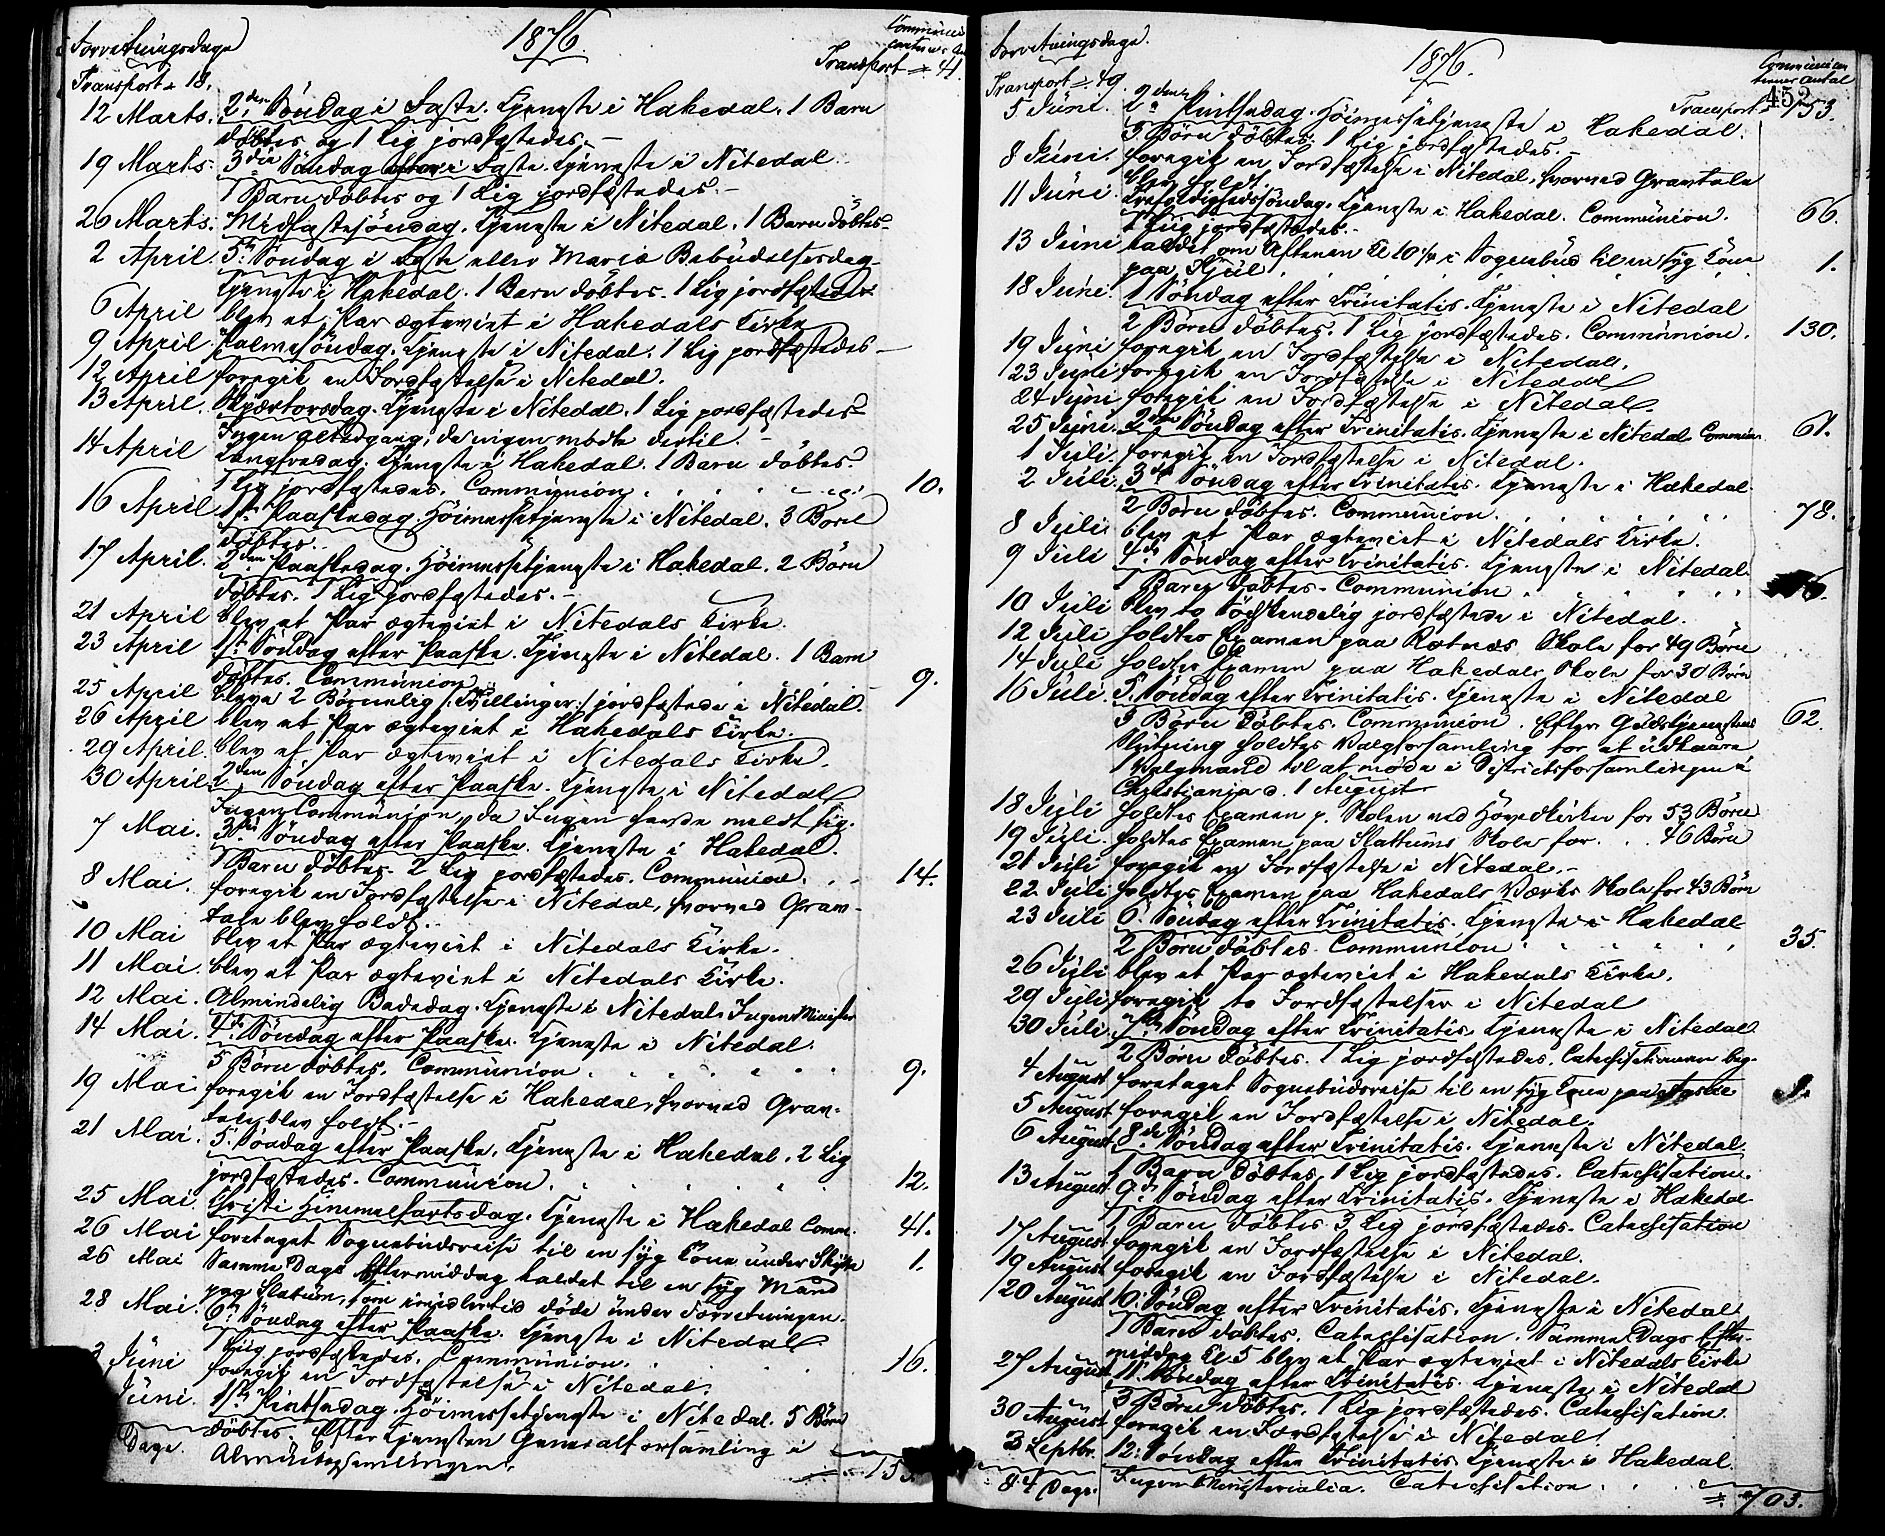 Forretningsdage
1876.
Communicanternes
Transport 18.
Transport = 41.
12 Marts. 2den Søndag i Faste. Tjeneste i Hakedal. 1 Barn
døbtes og 1 Lig jordfæstedes.
19 Marts. 3die Søndag i Faste. Tjeneste i Nitedal.
1 Barn døbtes og 1 Lig jordfæstedes. -
26 Marts. Midfastesøndag. Tjeneste i Nitedal. 1 Barn døbtes -
2 April. 5te Søndag i Faste eller Mariæ Bebudelsesdag
Tjeneste i Hakedal. 1 Barn døbtes. 1 Lig jordfæstedes
6 April blev et Par ægteviet i Hakedals Kirke
9 April. Palmesøndag. Tjeneste i Nitedal. 1 Lig jordfæstedes -
12 April foregik en Jordfæstelse i Nitedal.
13 April. Skjærtorsdag. Tjeneste i Nitedal. 1 Lig jordfæstedes
Ingen Altergang, da ingen mødte dertil. -
14 April Langfredag. Tjeneste i Hakedal. 1 Barn døbtes.
1 Lig jordfæstedes. Communion . . . . 10.
16 April 1ste Paaskedag. Høimessetjeneste i Nitedal. 3 Børn
døbtes.
17 April. 2den Paaskedag. Høimessetjeneste i Hakedal. 2 Børn
døbtes. 1 Lig jordfæstedes. -
21 April blev et Par ægteviet i Nitedals Kirke.
23 April 1ste Søndag efter Paaske. Tjeneste i Nitedal. 1 Barn
døbtes. Communion . . . . 9.
25 April bleve 2 Børnelig (: Tvillinger :) jordfæstede i Nitedal.
26 April blev et Par ægteviet i Hakedals Kirke.
29 April. blev et Par ægteviet i Nitedals Kirke.
30 April. 2den Søndag efter Paaske. Tjeneste i Nitedal
Ingen Communion, da Ingen havde meldt sig.
7 Mai. 3die Søndag efter Paaske. Tjeneste i Hakedal.
1 Barn døbtes. 2 Lig jordfæstedes. Communion. . . 14.
8 Mai. foregik en Jordfæstelse i Nitedal, hvorved Grav-
tale blev holdt.
10 Mai blev et Par ægteviet i Nitedals Kirke.
11 Mai blev et Par ægteviet i Nitedals Kirke.
12 Mai. Almindelig Bededag. Tjeneste i Nitedal. Ingen
14 Mai. 4de Søndag efter Paaske. Tjeneste i Nitedal.
5 Børn døbtes. Communion . . . . 9.
19 Mai foregik en Jordfæstelse i Hakedal, hvorved Grav-
tale blev holdt. -
21 Mai. 5. Søndag efter Paaske. Tjeneste i Hakedal. 2 Lig
jordfæstedes. Communion. . . . 12.
25 Mai. Christi Himmelfartsdag. Tjeneste i Hakedal Comm. 41.
26 Mai foretaget Sognebudsreise til en syg Kone under 1.
26 Mai Samme Dags Eftermiddag kaldet til en syg Mand
paa Slatum, som imidlertid døde under Forretningen.
28 Mai. 6te Søndag efter Paaske. Tjeneste i Nitedal
1 Lig jordfæstedes. Communion. . . . 16.
Juni foregik en Jordfæstelse i Nitedal.
Juni. 1ste Pintsedag. Høimessetjeneste i Nitedal. 5 Børn
døbtes. Efter Tjenesten Generalforsamling i
Dage. Almuebogsamlingen.
= 15
Forretningsdage.
1876.
Communicanternes Antal
Transport = 49.
452
Transport 153.
5 Juni. 2den Pintsedag. Høimessetjeneste i Hakedal.
3 Børn døbtes. 1 Lig jordfæstedes. -
8 Juni. foregik en Jordfæstelse i Nitedal, hvorved Gravtale
blev holdt.
11 Juni. Trefoldighedssøndag. Tjeneste i Hakedal. Communion. 66.
1 Lig jordfæstedes. -
13 Juni kaldet om Aftenen Kl 10 1/4 i Sognebud til en syg Kone
paa Kjul . . . . 1.
18 Juni. 1 Søndag efter Trinitatis. Tjeneste i Nitedal
2 Børn døbtes. 1 Lig jordfæstedes. Communion. 130.
19 Juni foregik en Jordfæstelse i Nitedal.
23 Juni foregik en Jordfæstelse i Nitedal
24 Juni foregik en Jordfæstelse i Nitedal.
25 Juni. 2den Søndag efter Trinitatis. Tjeneste i Nitedal. Commun. 61.
1 Juli. foregik en Jordfæstelse i Nitedal.
2 Juli. 3die Søndag efter Trinitatis. Tjeneste i Hakedal
2 Børn døbtes. Communion . . . . 78.
8 Juli. blev et Par ægteviet i Nitedals Kirke.
9 Juli 4de Søndag efter Trinitatis. Tjeneste i Nitedal.
1 Barn døbtes. Communion . . . .
10 Juli blev to Sødskendelig jordfæstede i Nitedal.
12 Juli holdtes Examen paa Rotnæs Skole for 49 Børn
14 Juli holdtes Examen paa Hakedals Skole for 30 Børn
16 Juli. 5. Søndag efter Trinitatis. Tjeneste i Nitedal
3 Børn døbtes. Communion. Efter Gudstjenestens 62.
Slutning holdtes Valgforsamling for at udkaare
1 Valgmand til at møde i Districtsforsamlingen i
Christiania d. 1 August
18 Juli holdtes Examen p. Skolen ved Hovedkirken for 53 Børn
19 Juli. holdtes Examen paa Slattums Skole for . . 46 Børn
21 Juli foregik en Jordfæstelse i Nitedal. -
22 Juli holdtes Examen paa Hakedals Værks Skole for 43 Børn
23 Juli 6. Søndag efter Trinitatis. Tjeneste i Hakedal
2 Børn døbtes. Communion . . . . 35.
26 Juli blev et Par ægteviet i Hakedals Kirke.
29 Juli foregik to Jordfæstelser i Nitedal
30 Juli. 7de Søndag efter Trinitatis. Tjeneste i Nitedal
2 Børn døbtes. 1 Lig jordfæstedes. Catechisationen beg.
4 August foretaget Sognebudsreise til en syg Kone paa 1.
5 August foregik en Jordfæstelse i Nitedal.
6 August. 8de Søndag efter Trinitatis. Tjeneste i Nitedal
1 Barn døbtes. 1 Lig jordfæstedes. Catechisation.
13 August 9de Søndag efter Trinitatis. Tjeneste i Hakedal
1 Barn døbtes. 3 Lig jordfæstedes. Catechisation
17 August foregik en Jordfæstelse i Nitedal.
19 August foregik en Jordfæstelse i Nitedal.
20 August 10. Søndag efter Trinitatis. Tjeneste i Nitedal
1 Barn døbtes. Catechisation. Samme Dags Efter-
middag Kl 5 blev et Par ægteviet i Nitedals Kirke
27 August 11. Søndag efter Trinitatis. Tjeneste i Nitedal
3 Børn døbtes. 1 Lig jordfæstedes. Catechisation.
30 August foregik en Jordfæstelse i Nitedal.
3 Septbr. 12. Søndag efter Trinitatis Tjeneste i Hakedal.
84 Dage. Ingen Ministerialia. Catechisation . . . .
= 703.